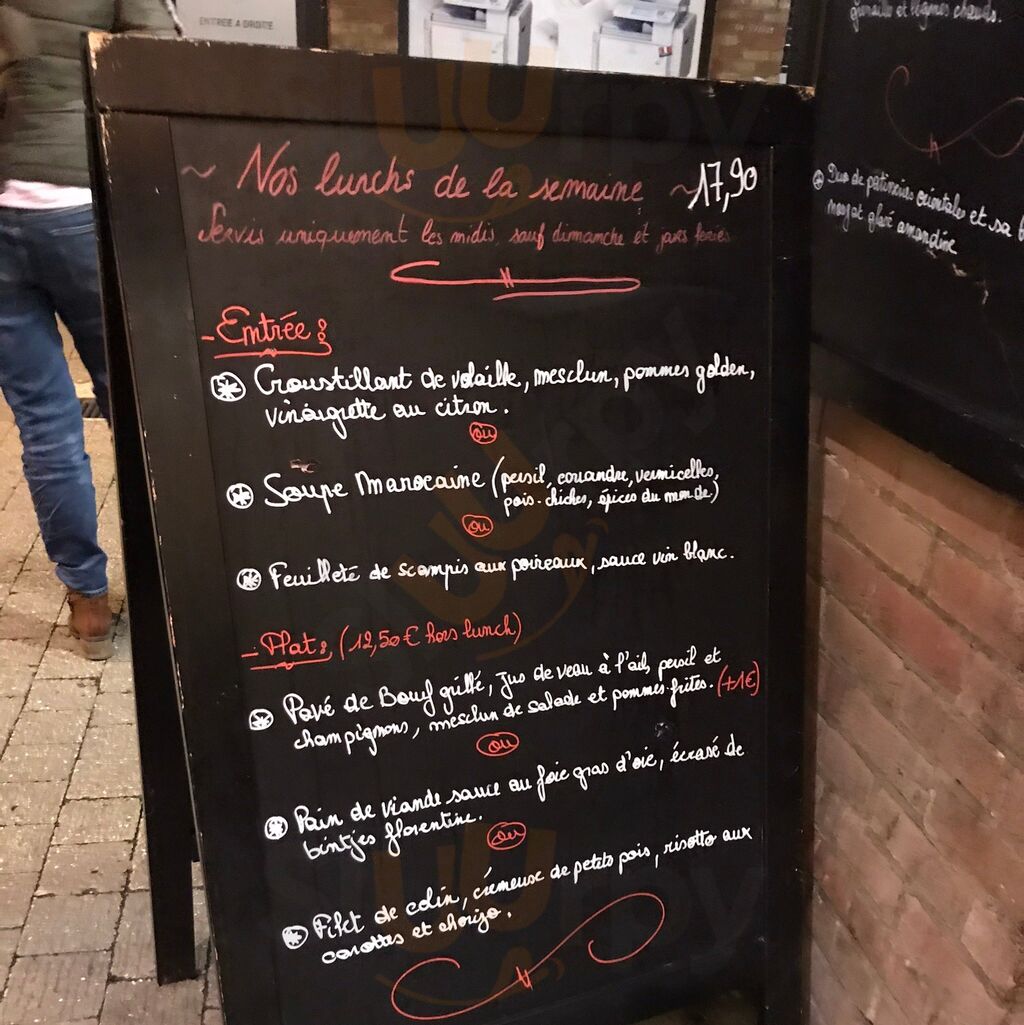 ENTREE A DROITE
~ Nos lunchs de la semaine ~ 17,90
Servis uniquement les midis, sauf dimanche et jours feries
- Entrée :
Croustillant de volaille, mesclun, pommes golden,
vinaigrette au citron.
ou
Soupe Marocaine (persil, coriandre, vermicelles,
pois-chiches, épices du monde)
ou
Feuilleté de scampis aux poireaux, sauce vin blanc.
- Plat : (12,50€ hors lunch)
Pavé de Bœuf grillé, jus de veau à l'ail, persil et
champignons, mesclun de salade et pommes-frites. (+1€)
ou
Pain de viande sauce au foie gras d'oie, écrasé de
bintjes florentine.
ou
Filet de colin, crémeuse de petits pois, risotto aux
carottes et chorizo.
et légumes chauds.
Duo de patisseries orientales et sa
nougat glacé amandine
wurpy